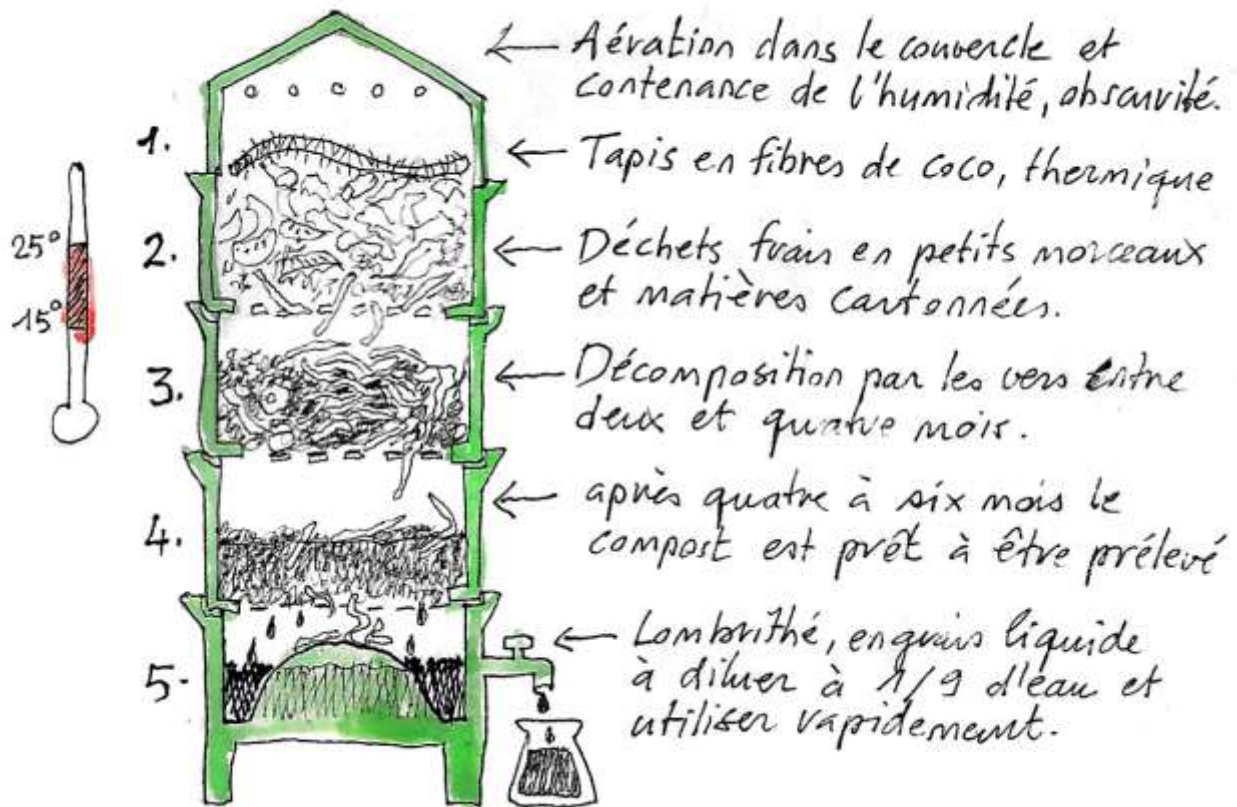 Aération dans le couvercle et
contenance de l'humidité, obscurité.
1.
Tapis en fibres de coco, thermique
25°
2.
Déchets frais en petits morceaux
et matières cartonnées.
15°
3.
Décomposition par les vers entre
deux et quatre mois.
4.
après quatre à six mois le
compost est prêt à être prélevé
5-
Lombrithé, engrais liquide
à diluer à 1/9 d'eau et
utiliser rapidement.